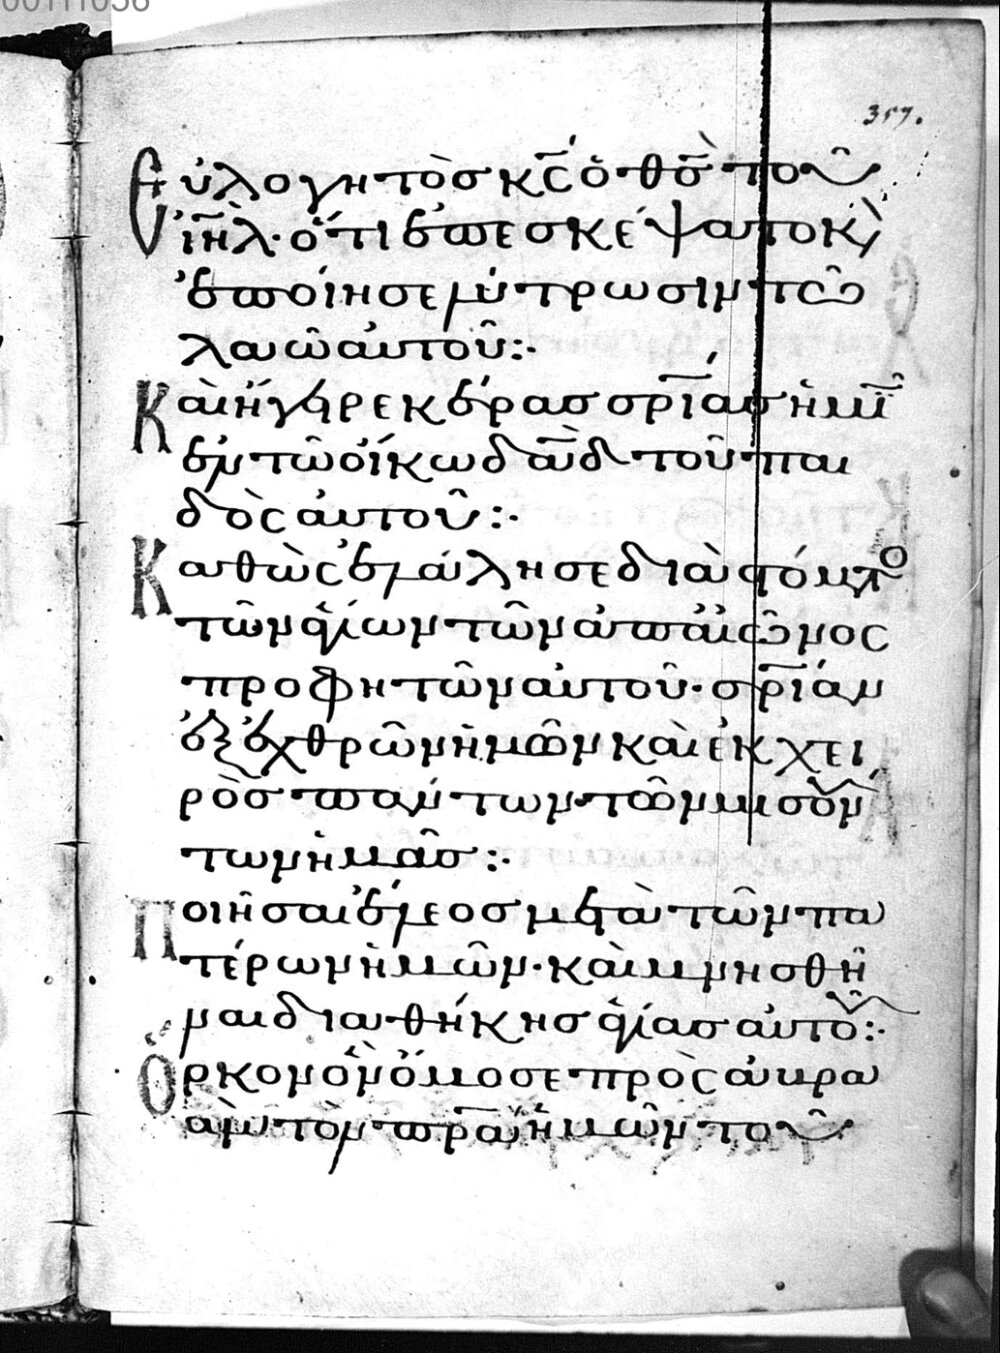 00111056
357.
Εὐλογητὸς κ̅ς̅ ὁ θ̅ς̅ τοῦ
ι̅η̅λ̅· ὅτι ἐπεσκέψατο κ̀
ἐποίησε λύτρωσιν τῶ
λαῶ αὐτοῦ:·
Καὶ ἤγειρε κέρας σ̅ρ̅ι̅ας ἡμῖ
ἐν τῶ οἴκω δ̅α̅δ̅ τοῦ παι
δὸς αὐτοῦ:·
Καθὼς ἐλάλησε διὰ στόματο
τῶν ἁγίων τῶν ἀπ αἰῶνος
προφητῶν αὐτοῦ· σ̅ρ̅ι̅αν
ἐξ ἐχθρῶν ἡμῶν καὶ ἐκ χει
ρὸς πάντων τῶν μισούν
των ἡμᾶς:·
Ποιῆσαι ἔλεος μετὰ τῶν πα
τέρων ἡμῶν· καὶ μνησθῆ
ναι διαθήκης ἁγίας αὐτοῦ:·
Ὅρκον ὃν ὤμοσε πρὸς ἀβρα
ὰμ τὸν π̅ρ̅α̅ ἡμῶν τοῦ